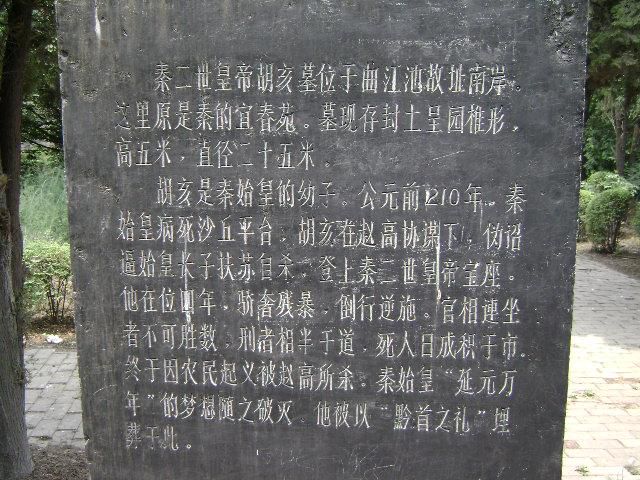 秦二世皇帝胡亥墓位于曲江池故址南岸。
这里原是秦的宜春苑。墓现存封土呈园椎形，
高五米，直径二十五米。
胡亥是秦始皇的幼子。公元前210年，秦
始皇病死沙丘平台，胡亥在赵高协谋下，伪诏
逼始皇长子扶苏自杀，登上秦二世皇帝宝座。
他在位四年，骄奢残暴，倒行逆施。官相連坐
者不可胜数，刑者相半于道，死人日成积于市。
终于因农民起义被赵高所杀。秦始皇“延元万
年”的梦想随之破灭。他被以“黔首之礼”埋
葬于此。